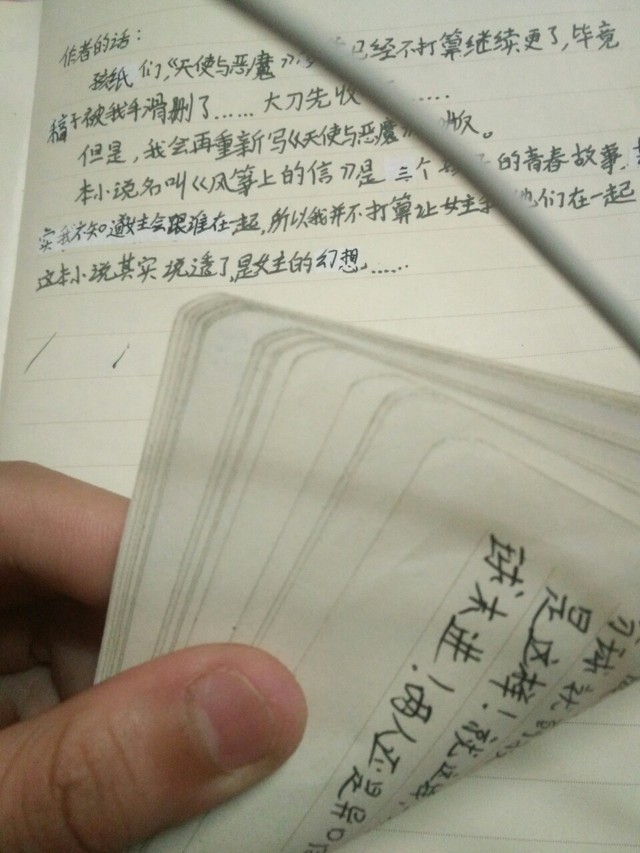 作者的话：
孩纸们，《天使与恶魔》已经不打算继续更了，毕竟
稿子被我手滑删了……大刀先收……
但是，我会再重新写《天使与恶魔》版。
本小说名叫《风筝上的信》是三个的青春故事，
实我不知道女主会跟谁在一起，所以我并不打算让女主他们在一起
这本小说其实说透了，是女主的幻想……
球未进！两人还是
是这样！就这样